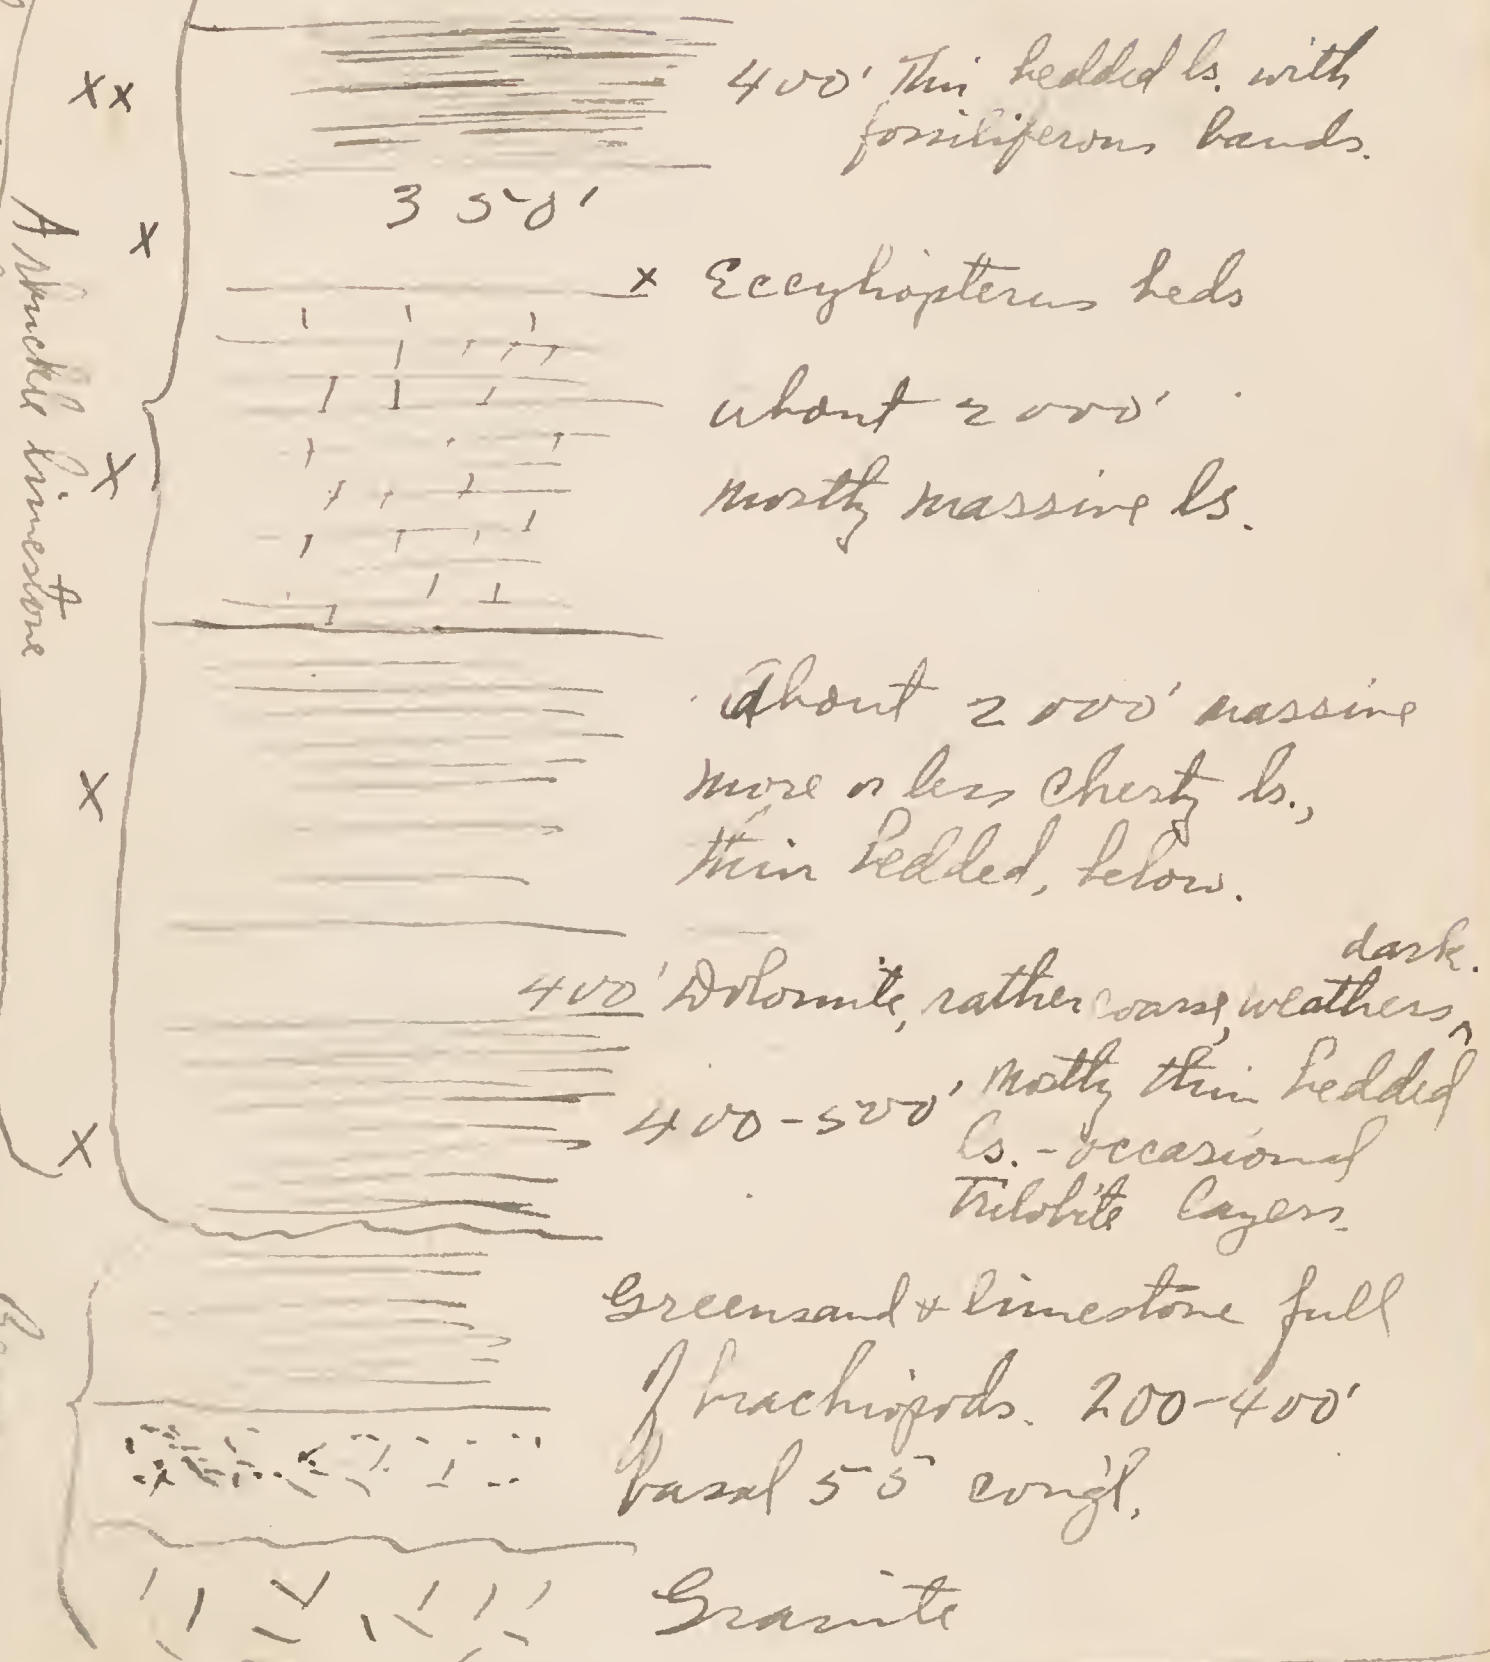 400' Thin bedded ls. with
fossiliferous bands.
350'
x Eccyliopterus beds
about 2000'
mostly massive ls.
About 2000' massive
more or less cherty ls.,
thin bedded, below.
dark.
400' Dolomite, rather coarse, weathers ^
400-500' mostly thin bedded
ls. - occasional
Trilobite layers.
Greensand & limestone full
of brachiopods. 200-400'
basal SS cong'l.
Granite
Arbuckle limestone
xx
x
x
x
x